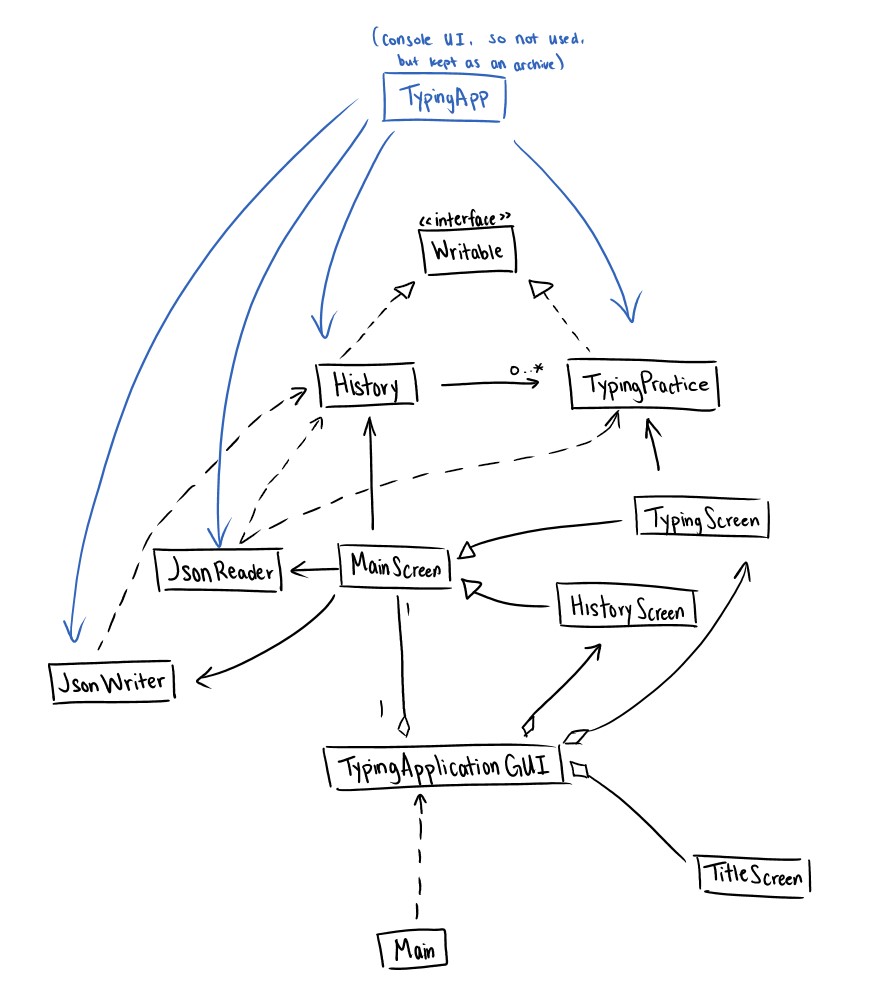 (Console UI, so not used,
but kept as an archive)
TypingApp
<<interface>>
Writable
History
0..*
TypingPractice
TypingScreen
JsonReader
MainScreen
HistoryScreen
1
JsonWriter
1
TypingApplicationGUI
TitleScreen
Main